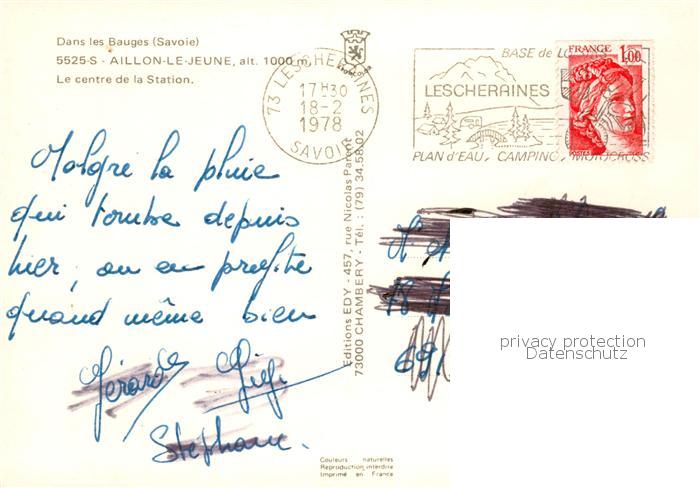 Dans les Bauges (Savoie)
5525-S - AILLON-LE-JEUNE, alt. 1000 m.
Le centre de la Station.
73 LESCHERAINES
17H30
18-2
1978
SAVOIE
BASE de
LESCHERAINES
PLAN d'EAU, CAMPING, MOTOCROSS
FRANCE 1,00
Malgré la pluie
qui tombe depuis
hier, on en profite
quand même bien
Gérard Gigi
Stéphane.
Editions EDY - 457, rue Nicolas Parent
73000 CHAMBERY - Tél. : (79) 34.58.02
69
privacy protection
Datenschutz
Couleurs naturelles
Reproduction interdite
Imprimé en France